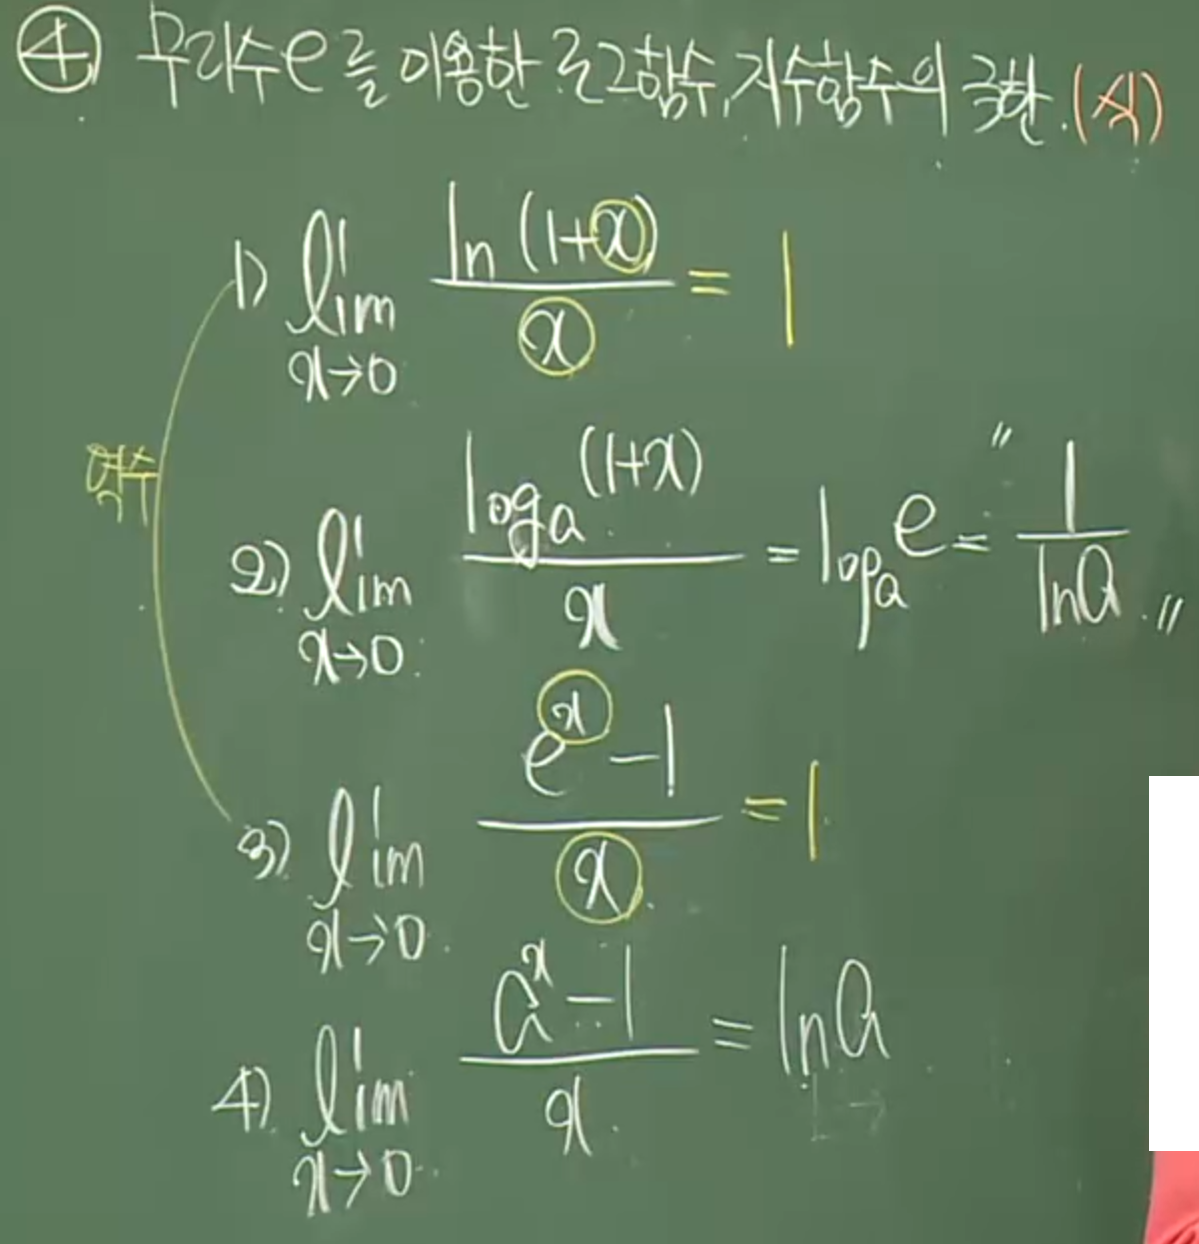 ④ 무리수 e를 이용한 로그함수, 지수함수의 극한. (식)
1) lim x→0 ln(1+x)/x = 1
2) lim x→0 log_a (1+x)/x = log_a e = "1/ln a"
3) lim x→0 (e^x - 1)/x = 1
4) lim x→0 (a^x - 1)/x = ln a